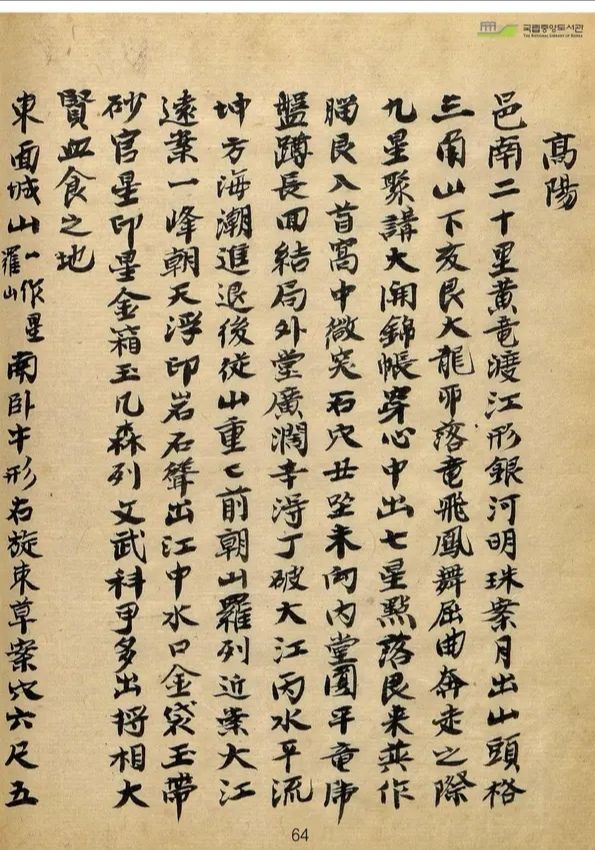 국립중앙도서관
THE NATIONAL LIBRARY OF KOREA
高陽
邑南二十里黄竜渡江形銀河明珠案月出山頭格
三角山下亥艮大龍卯落竜飛鳳舞屈曲奔走之際
九星聚講大開錦帳穿心中出七星㸃落艮来巽作
腦艮入首窩中微突石穴丑坐未向内堂圓平竜虎
盤蹲長回結局外堂廣濶辛淂丁破大江丙水平流
坤方海潮進退後従山重〻前朝山羅列近案大江
遠案一峰朝天浮印岩石聳出江中水口金袋玉帶
砂官星印星金箱玉几森列文武科甲多出将相大
賢血食之地
東面城山一作星羅山南卧牛形右旋束草案穴六尺五
64